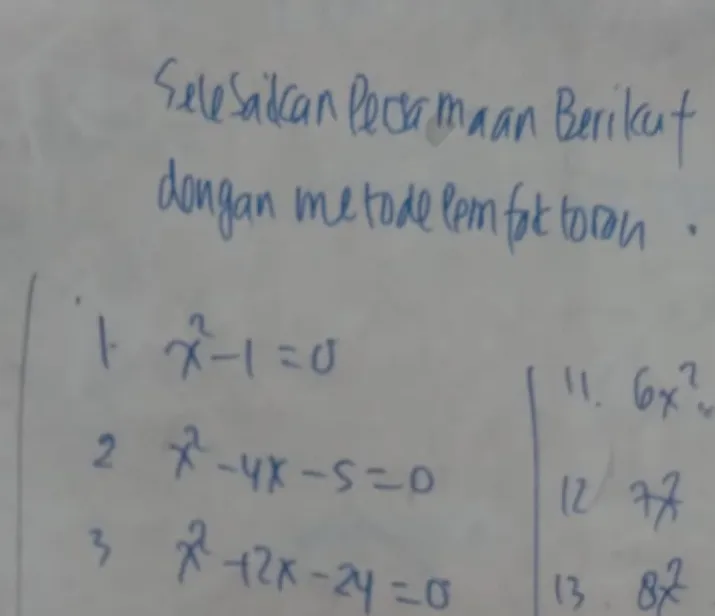 Selesaikan Persamaan Berikut
dengan metode Pemfaktoran.
1. x² - 1 = 0
2 x² - 4x - 5 = 0
3 x² + 2x - 24 = 0
11. 6x²
12 7x²
13 8x²